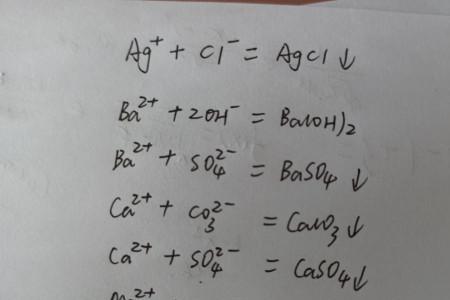 Ag⁺ + Cl⁻ = AgCl↓
Ba²⁺ + 2OH⁻ = Ba(OH)₂
Ba²⁺ + SO₄²⁻ = BaSO₄↓
Ca²⁺ + CO₃²⁻ = CaCO₃↓
Ca²⁺ + SO₄²⁻ = CaSO₄↓